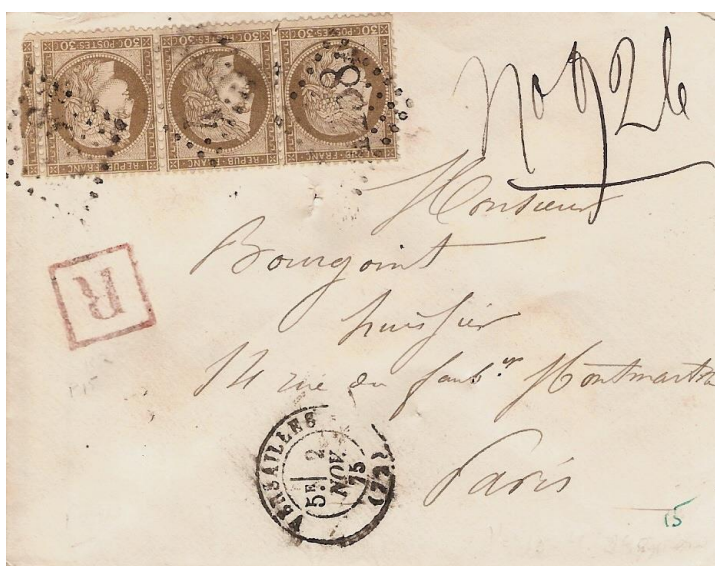 30 C POSTES 30 C
REPUB FRANC
30 C POSTES 30 C
REPUB FRANC
30 C POSTES 30 C
REPUB FRANC
No 926
Monsieur
Bourgoint
huissier
14 rue du faubg Montmartre
Paris
R
VERSAILLES
5E 2
NOV.
75
(72)
15